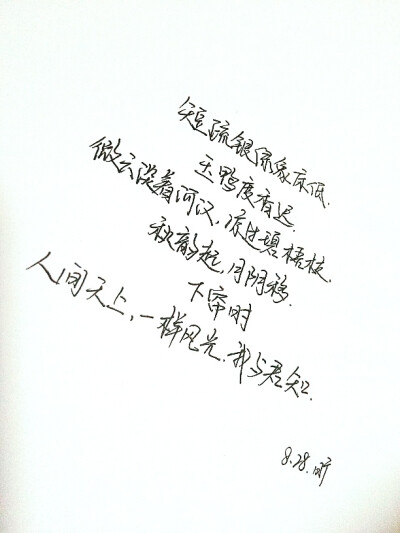 短疏银绿象床低.
玉鸭度香迟.
微云淡着河汉,凉过碧梧枝.
秋韵起,月阴移.
下帘时
人间天上,一样风光.我与君知.
8.28.昕